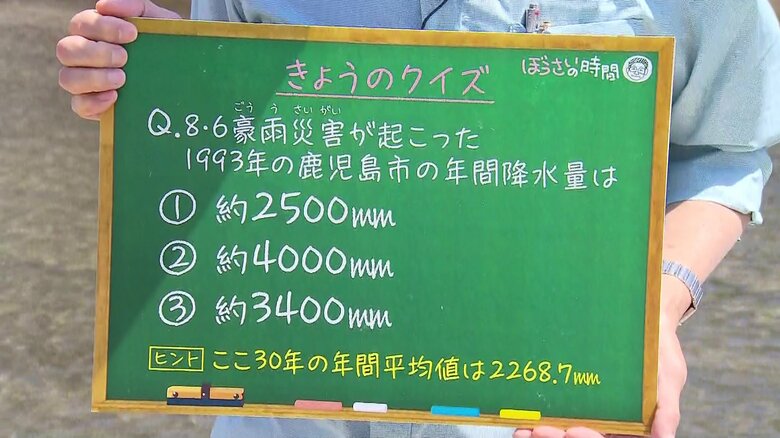 きょうのクイズ
ぼうさいの時間
Q.8・6豪雨災害が起こった
ごうう さいがい
1993年の鹿児島市の年間降水量は
① 約2500mm
② 約4000mm
③ 約3400mm
ヒント ここ30年の年間平均値は2268.7mm